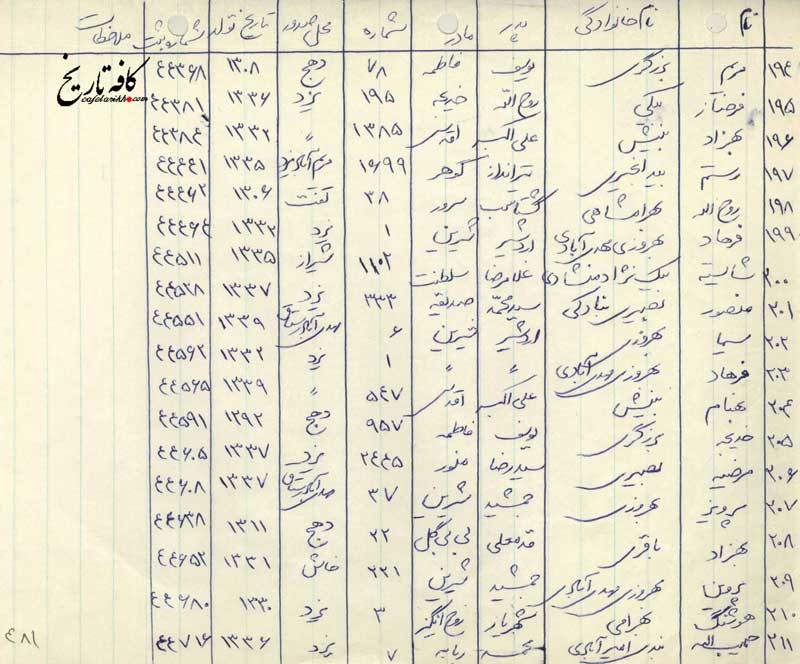 نام نام خانوادگی پدر مادر شماره محل صدور تاریخ تولد شماره ثبت ملاحظات
کافه تاریخ
cafetarikh.com
۱۹۴ مریم برزگری یوسف فاطمه ۷۸ دهج ۱۳۰۸ ۴۴۳۶۸
۱۹۵ فرحناز روح الله خدیجه ۱۹۵ یزد ۱۳۳۶ ۴۴۳۸۱
۱۹۶ بهزاد بینش علی اکبر اقدس ۱۳۸۵ " ۱۳۳۲ ۴۴۳۸۴
۱۹۷ رستم تیرانداز گوهر ۱۶۶۹۹ مریم آباد یزد ۱۳۳۵ ۴۴۴۴۱
۱۹۸ روح الله بهرامشاهی گشتاسب سرور ۳۸ تفت ۱۳۰۶ ۴۴۴۶۲
۱۹۹ فرهاد بهروزی مهدی آبادی اردشیر شیرین ۱ یزد ۱۳۳۲ ۴۴۴۶۴
۲۰۰ شایسته نیک نژاد منشادی غلامرضا سلطنت ۱۱۰۲ شیراز ۱۳۳۵ ۴۴۵۱۱
۲۰۱ منصور نصیری بنادکی سید محمد صدیقه ۳۳۳ یزد ۱۳۳۷ ۴۴۵۲۸
۲۰۲ سیما بهروزی اردشیر شیرین ۶ مهدی آباد رستاق ۱۳۳۹ ۴۴۵۵۱
۲۰۳ فرهاد بهروزی مهدی آبادی " " ۱ یزد ۱۳۳۲ ۴۴۵۶۲
۲۰۴ بهنام بینش علی اکبر اقدس ۵۴۷ " ۱۳۳۹ ۴۴۵۶۵
۲۰۵ خدیجه برزگری یوسف فاطمه ۹۵۷ دهج ۱۲۹۲ ۴۴۵۹۱
۲۰۶ مرضیه نصیری سید رضا منور ۲۴۴۵ یزد ۱۳۳۷ ۴۴۶۰۵
۲۰۷ پرویز بهروزی جمشید شیرین ۳۷ مهدی آباد رستاق ۱۳۳۷ ۴۴۶۰۸
۲۰۸ بهزاد باقری قدمعلی بی بی گل ۲۲ دهج ۱۳۱۱ ۴۴۶۳۸
۲۰۹ پروین بهروزی مهدی آبادی جمشید شیرین ۲۲۱ خاش ۱۳۳۱ ۴۴۶۵۲
۲۱۰ هوشنگ بهرامی شهریار روح انگیز ۳ یزد ۱۳۳۰ ۴۴۶۸۰
۲۱۱ حبیب الله محمد ربابه ۷ یزد ۱۳۳۶ ۴۴۷۱۶
۴۸۱